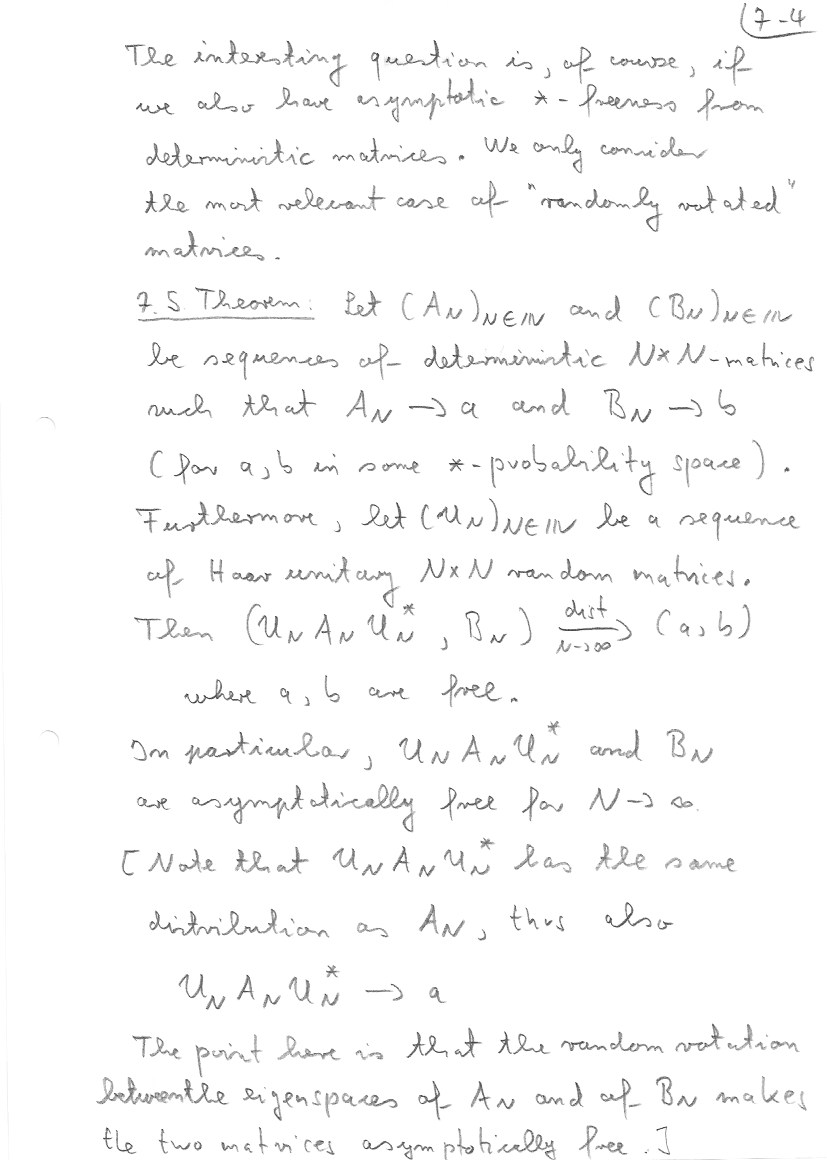 7-4
The interesting question is, of course, if
we also have asymptotic *-freeness from
deterministic matrices. We only consider
the most relevant case of "randomly rotated"
matrices.
7.5. Theorem: Let (A_N)_{N∈ℕ} and (B_N)_{N∈ℕ}
be sequences of deterministic N×N-matrices
such that A_N → a and B_N → b
(for a, b in some *-probability space).
Furthermore, let (U_N)_{N∈ℕ} be a sequence
of Haar unitary N×N random matrices.
Then (U_N A_N U_N^*, B_N) \xrightarrow[N→∞]{dist} (a, b)
where a, b are free.
In particular, U_N A_N U_N^* and B_N
are asymptotically free for N → ∞.
[Note that U_N A_N U_N^* has the same
distribution as A_N, thus also
U_N A_N U_N^* → a
The point here is that the random rotation
between the eigenspaces of A_N and of B_N makes
the two matrices asymptotically free.]